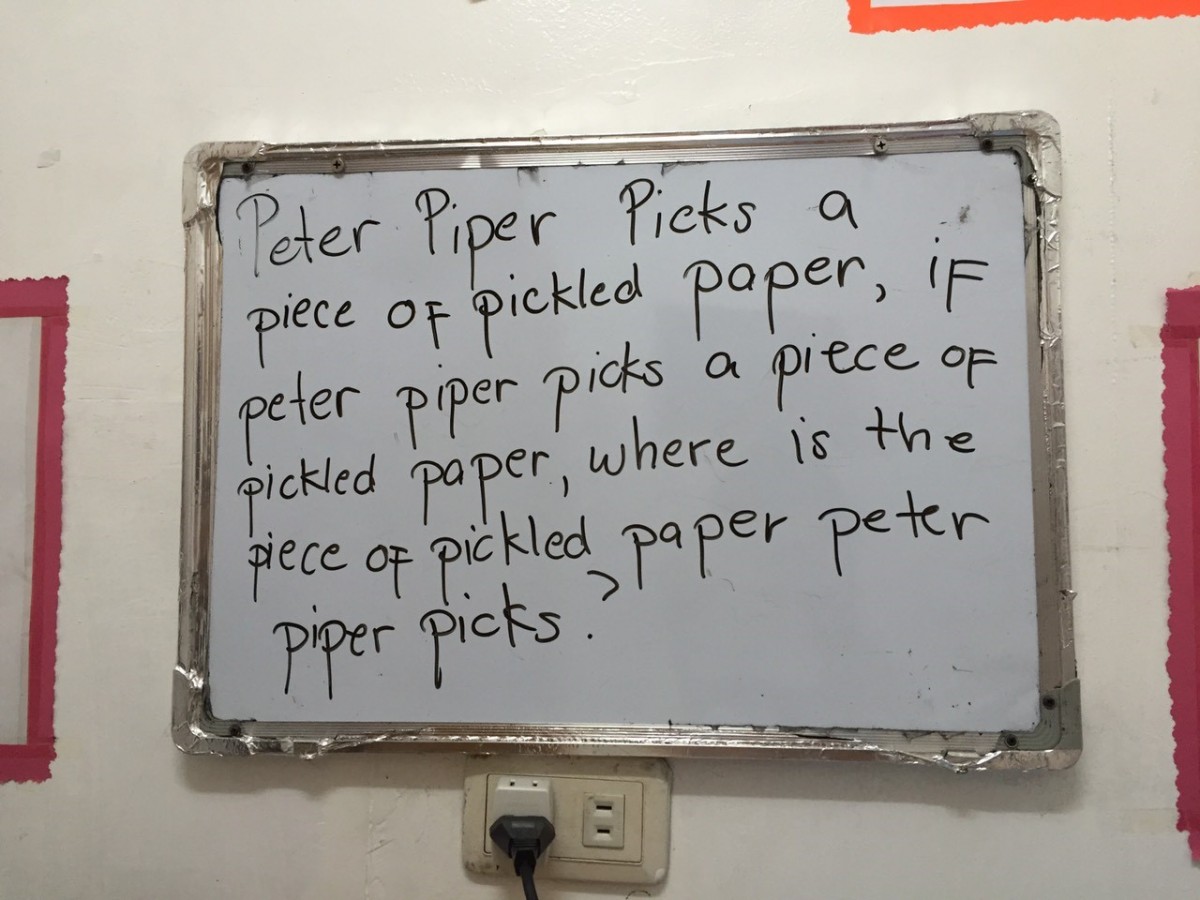 Peter Piper Picks a
piece OF pickled paper, iF
peter piper picks a piece OF
pickled paper, where is the
piece OF pickled paper peter
piper picks?